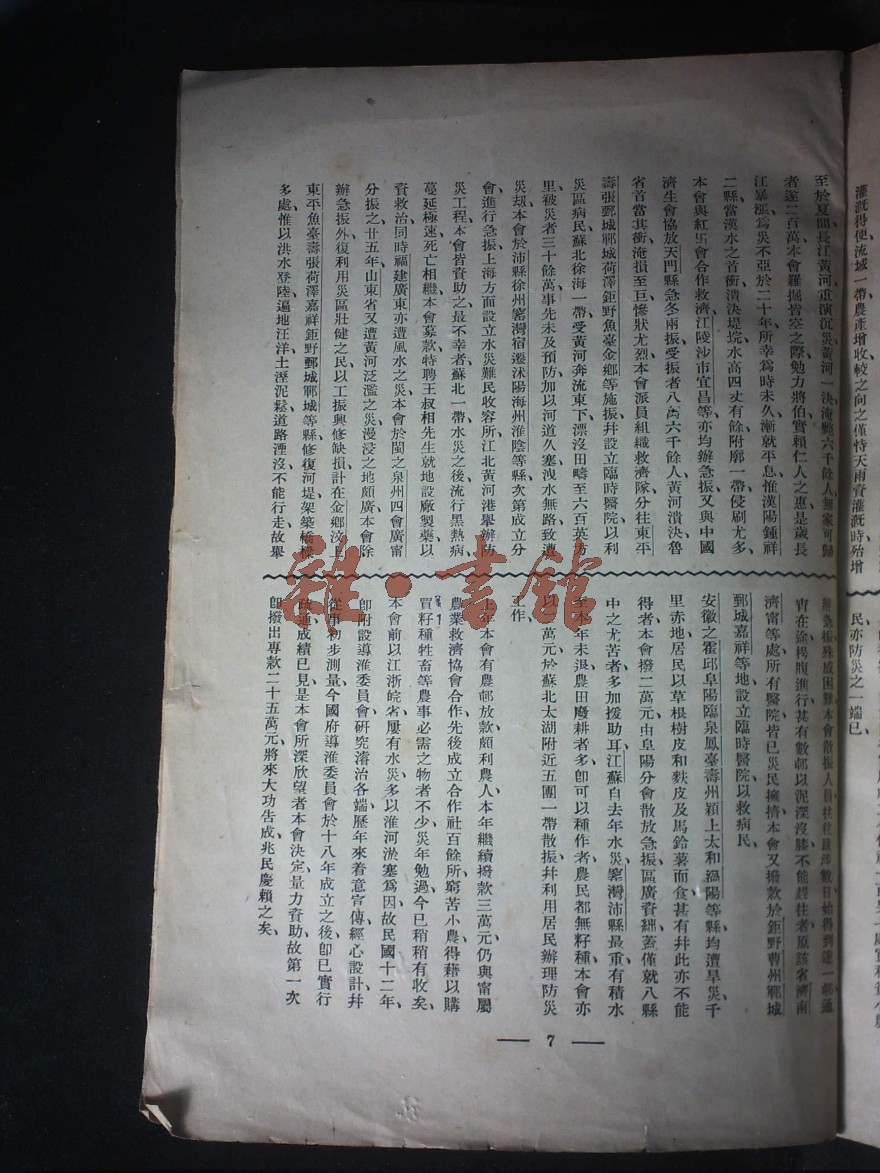 至於夏間長江黃河重演沉災黃河一決淹縣六千餘人無家可歸
者達二百萬本會羅掘皆空之際勉力將伯實賴仁人之惠是歲長
江暴漲爲災不亞於二十年所幸爲時未久漸就平息惟漢陽鍾祥
二縣當漢水之首衝潰決堤垸水高四丈有餘附廓一帶侵刷尤多
本會與紅卍會合作救濟江陵沙市宜昌等亦均辦急振又與中國
濟生會協放天門縣急冬兩振受振者八萬六千餘人黃河潰決魯
省首當其衝淹損至巨慘狀尤烈本會派員組織救濟隊分往東平
壽張鄆城鄄城荷澤鉅野魚臺金鄉等施振幷設立臨時醫院以利
災區病民蘇北徐海一帶受黃河奔流東下漂沒田疇至六百英方
里被災者三十餘萬事先未及預防加以河道久塞洩水無路致遭
災刼本會於沛縣徐州窰灣宿遷沭陽海州淮陰等縣次第成立分
會進行急振上海方面設立水災難民收容所江北黃河港舉辦防
災工程本會皆資助之最不幸者蘇北一帶水災之後流行黑熱病
蔓延極速死亡相繼本會募款特聘王叔相先生就地設廠製藥以
資救治同時福建廣東亦遭風水之災本會於閩之泉州四會廣甯
分振之廿五年山東省又遭黃河泛濫之災漫浸之地頗廣本會除
辦急振外復利用災區壯健之民以工振興修缺損計在金鄉汶上
東平魚臺壽張荷澤嘉祥鉅野鄆城鄄城等縣修復河堤架築橋樑
多處惟以洪水登陸遍地汪洋土溼泥鬆道路湮沒不能行走故舉
辦急振殊感困難本會散振人員往往跋涉數日始得到達一邨通
宵在途場腹進行甚有數邨以泥深沒膝不能趕往者原該省濟南
濟甯等處所有醫院皆已災民擁擠本會又撥款於鉅野曹州鄄城
鄆城嘉祥等地設立臨時醫院以救病民
安徽之霍邱阜陽臨泉鳳臺壽州潁上太和渦陽等縣均遭旱災千
里赤地居民以草根樹皮和麩皮及馬鈴薯而食甚有幷此亦不能
得者本會撥二萬元由阜陽分會散放急振區廣資絀蓋僅就八縣
中之尤苦者多加援助耳江蘇自去年水災窰灣沛縣最重有積水
至本年未退農田廢耕者多卽可以種作者農民都無籽種本會亦
以一萬元於蘇北太湖附近五團一帶散振幷利用居民辦理防災
工作
上年本會有農邨放款頗利農人本年繼續撥款三萬元仍與甯屬
農業救濟協會合作先後成立合作社百餘所窮苦小農得藉以購
買籽種牲畜等農事必需之物者不少災年勉過今已稍稍有收矣
本會前以江浙皖省屢有水災多以淮河淤塞爲因故民國十二年
卽附設導淮委員會硏究濬治各端歷年來着意宣傳經心設計幷
從事初步測量今國府導淮委員會於十八年成立之後卽已實行
改進成績已見是本會所深欣望者本會決定量力資助故第一次
卽撥出專款二十五萬元將來大功告成兆民慶賴之矣
— 7 —
灌漑得便流域一帶農產增收較之向之僅恃天雨資灌漑時殆增
民亦防災之一端已
雜·書館